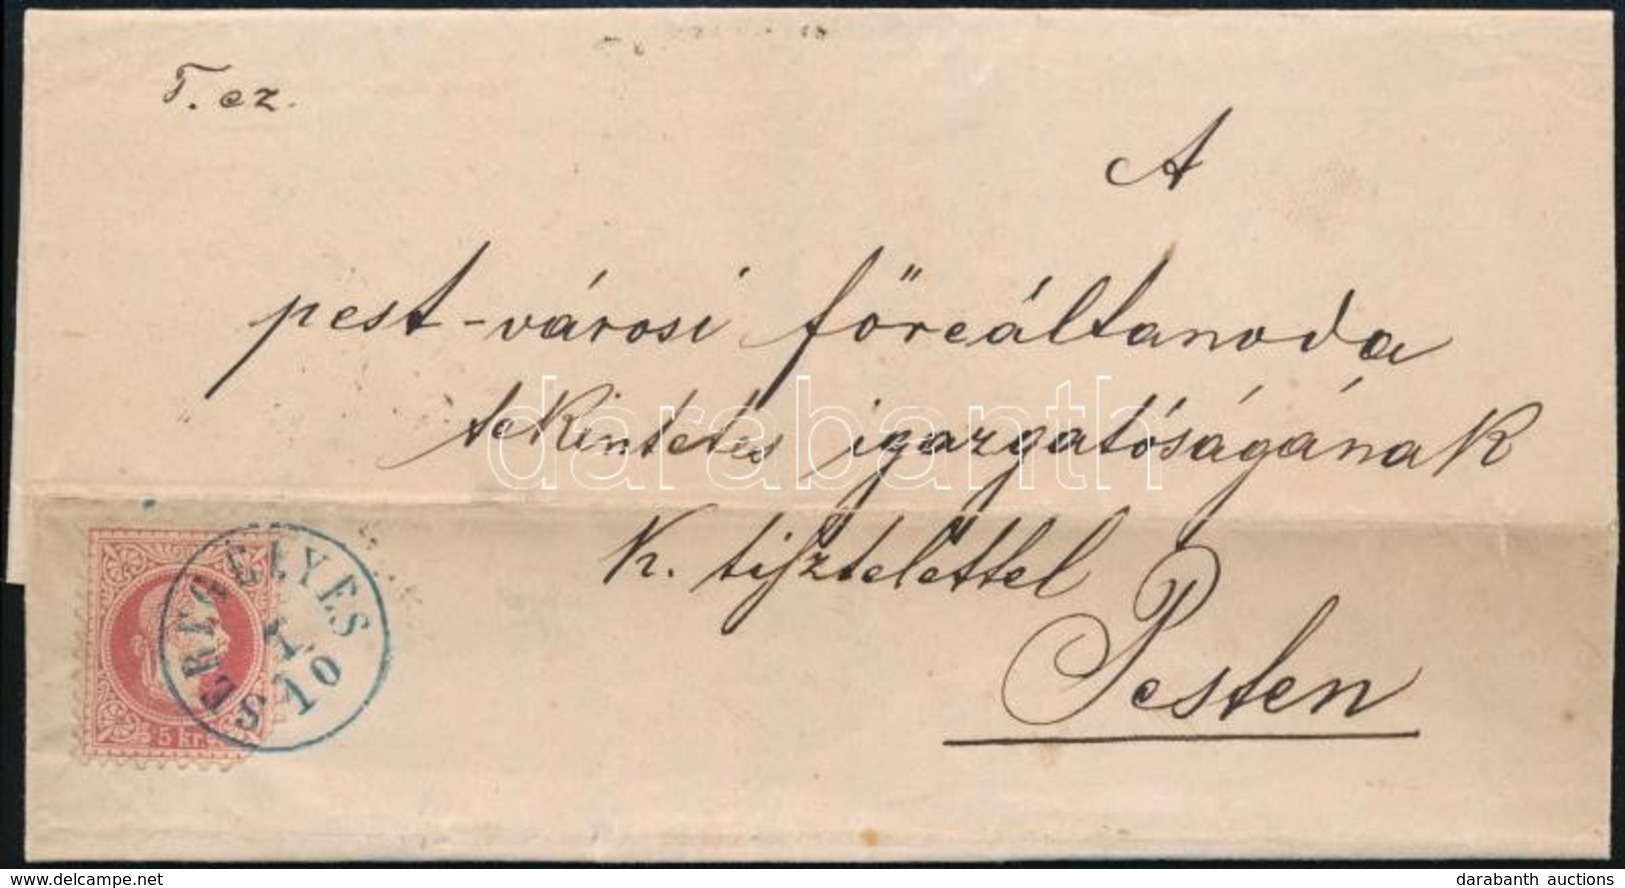 T. ez.
A
pest-városi főreáltanoda
tekintetes igazgatóságának
k. tisztelettel
Pesten
5 kr.
10
darabanth
www.delcampe.net
darabanth auctions